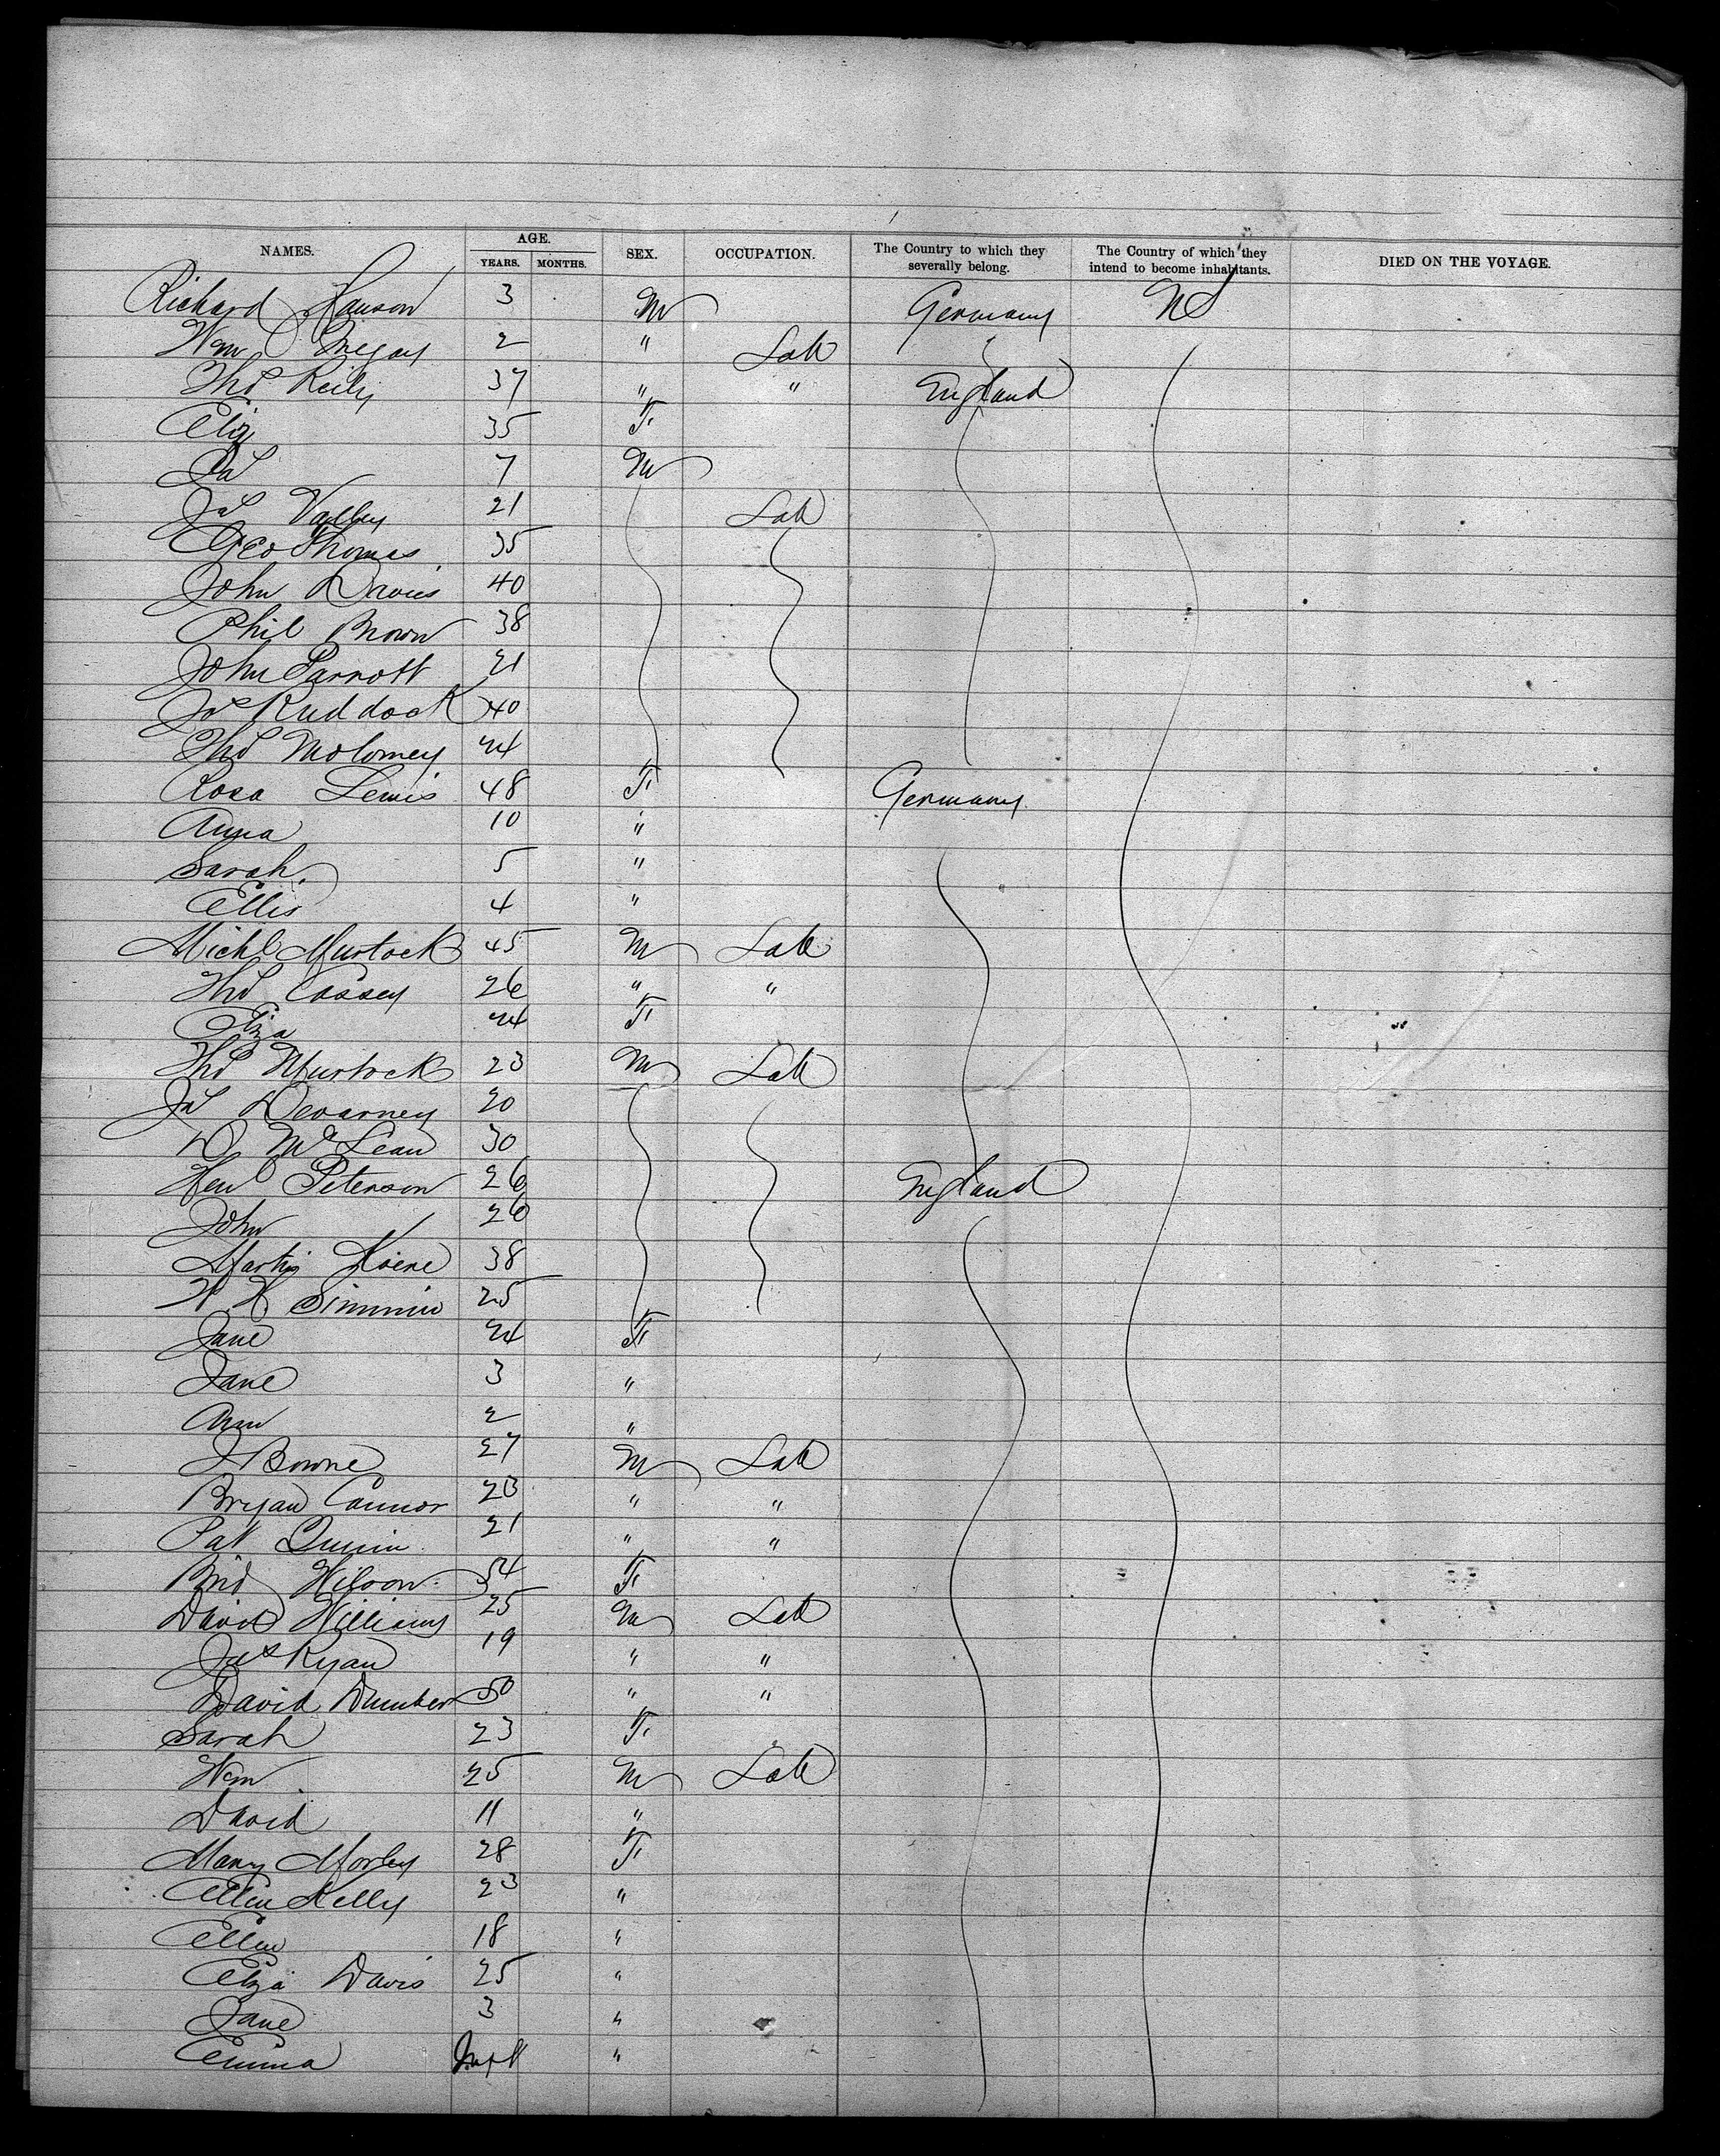 NAMES. AGE. YEARS. MONTHS. SEX. OCCUPATION. The Country to which they severally belong. The Country of which they intend to become inhabitants. DIED ON THE VOYAGE.
Richard Hanson 3 M Germany US
Wm 2 " Lab
Thos Reily 37 " " England
Eliz 35 F
Jas 7 M
Jas Valley 21 Lab
Geo Thomas 35
John Davis 40
Phil Brown 38
John Parrott 21
Jos Ruddock 40
Thos Molomey 24
Rosa Lewis 48 F Germany
Anna 10 "
Sarah 5 "
Ellis 4 "
Michl Murtock 45 M Lab
Thos Cassey 26 " "
Eliza 24 F
Thos Murtock 23 M Lab
Jas Devarney 20
D McLean 30
Hen Peterson 26 England
John 26
Martin 38
W H Simmin 25
Jane 24 F
Jane 3 "
Ann 2 "
J Bowne 27 M Lab
Bryan Connor 23 " "
Pat Quinn 21 " "
Brid Wilson 54 F
David Williams 25 M Lab
Jas Ryan 19 " "
David Dumber 50 " "
Sarah 23 F
Wm 25 M Lab
David 11 "
Mary Morley 28 F
Ellen Kelly 23 "
Ellen 18 "
Elza Davis 25 "
Jane 3 "
Emma Inft "